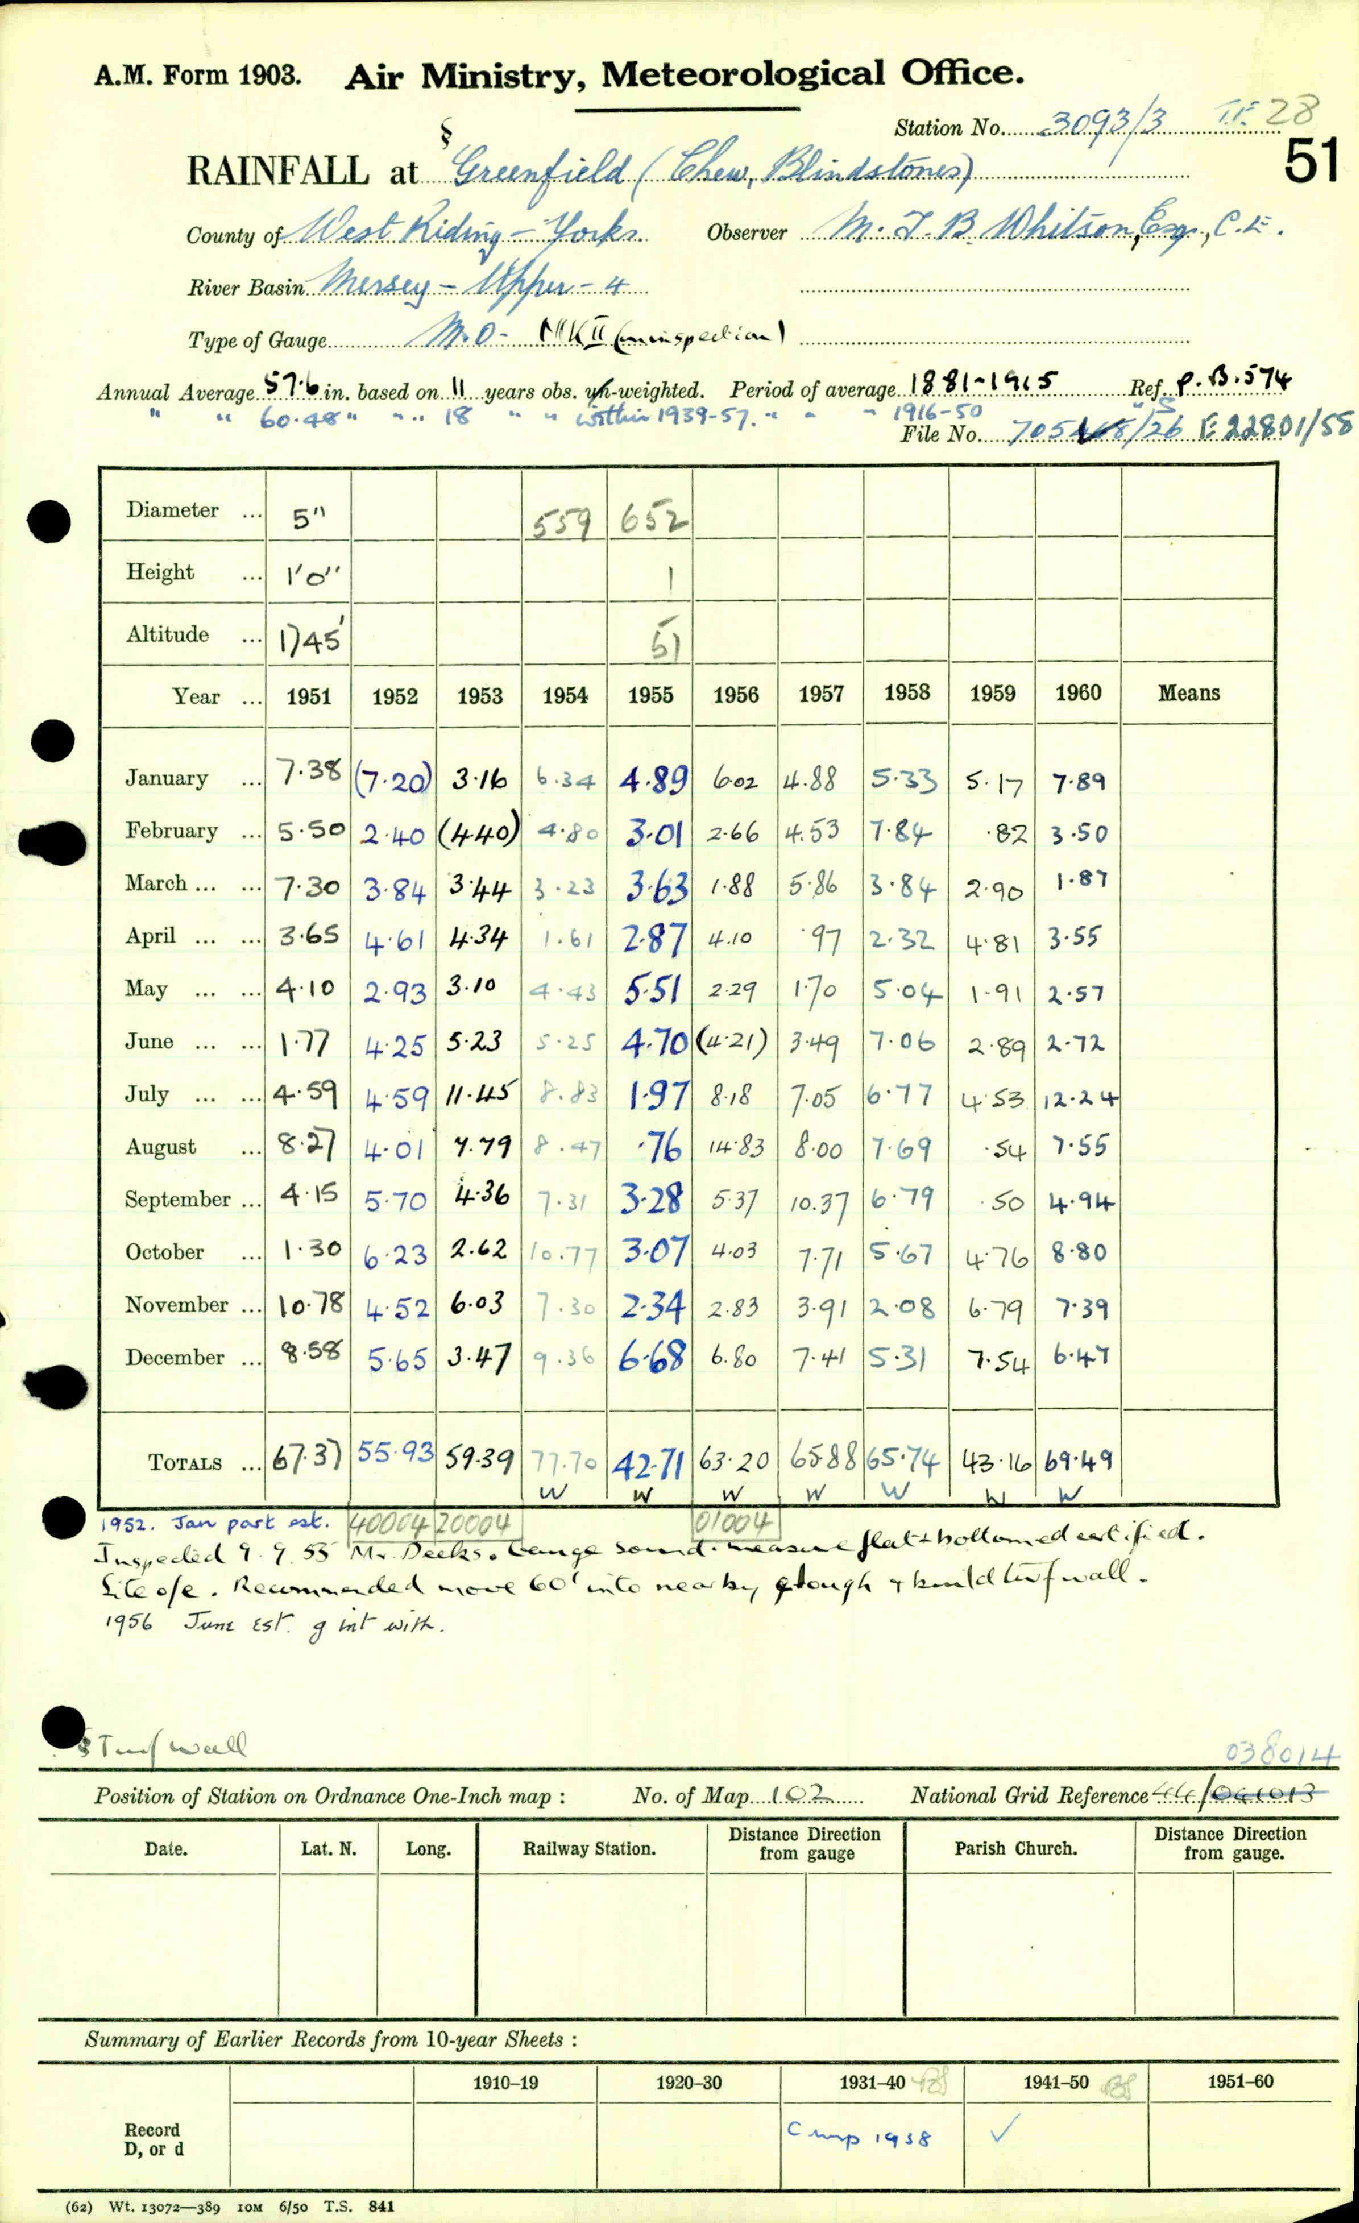 A.M. Form 1903. Air Ministry, Meteorological Office.
Station No. 3093/3 28
51
§
RAINFALL at Greenfield (Chew, Blindstones)
County of West Riding - Yorks. Observer M. T. B. Whitson, Esq., C.E.
River Basin Mersey - Upper - 4
Type of Gauge M.O. MK II (on inspection)
Annual Average 57.6 in. based on 11 years obs. un-weighted. Period of average 1881-1915 Ref. P.B.574
" " 60.48 " " " 18 " " within 1939-57. " " " 1916-50
File No. /26 E 22801/58
Diameter ... 5" 559 652
Height ... 1'0" 1
Altitude ... 1745' 51
Year ... 1951 1952 1953 1954 1955 1956 1957 1958 1959 1960 Means
January ... 7.38 (7.20) 3.16 6.34 4.89 6.02 4.88 5.33 5.17 7.89
February ... 5.50 2.40 (4.40) 4.80 3.01 2.66 4.53 7.84 .82 3.50
March ... ... 7.30 3.84 3.44 3.23 3.63 1.88 5.86 3.84 2.90 1.87
April ... ... 3.65 4.61 4.34 1.61 2.87 4.10 .97 2.32 4.81 3.55
May ... ... 4.10 2.93 3.10 4.43 5.51 2.29 1.70 5.04 1.91 2.57
June ... ... 1.77 4.25 5.23 5.25 4.70 (4.21) 3.49 7.06 2.89 2.72
July ... ... 4.59 4.59 11.45 8.83 1.97 8.18 7.05 6.77 4.53 12.24
August ... 8.27 4.01 7.79 8.47 .76 14.83 8.00 7.69 .54 7.55
September ... 4.15 5.70 4.36 7.31 3.28 5.37 10.37 6.79 .50 4.94
October ... 1.30 6.23 2.62 10.77 3.07 4.03 7.71 5.67 4.76 8.80
November ... 10.78 4.52 6.03 7.30 2.34 2.83 3.91 2.08 6.79 7.39
December ... 8.58 5.65 3.47 9.36 6.68 6.80 7.41 5.31 7.54 6.47
TOTALS ... 67.37 55.93 59.39 77.70 42.71 63.20 65.88 65.74 43.16 69.49
W W W W W W W
1952. Jan part est. 40004 20004 01004
Inspected 9.9.55 Mr. Deeks. Gauge sound. measure flat bottomed certified.
Site o/e. Recommended move 60' into nearby clough & build turf wall.
1956 June est. g int with.
§ Turf wall
038014
Position of Station on Ordnance One-Inch map : No. of Map 102 National Grid Reference 44/041013
Date. Lat. N. Long. Railway Station. Distance from Direction gauge Parish Church. Distance from Direction gauge.
Summary of Earlier Records from 10-year Sheets :
1910–19 1920–30 1931–40 1941–50 1951–60
Record
D, or d
Cmp 1938 ✓
(62) Wt. 13072—389 10M 6/50 T.S. 841